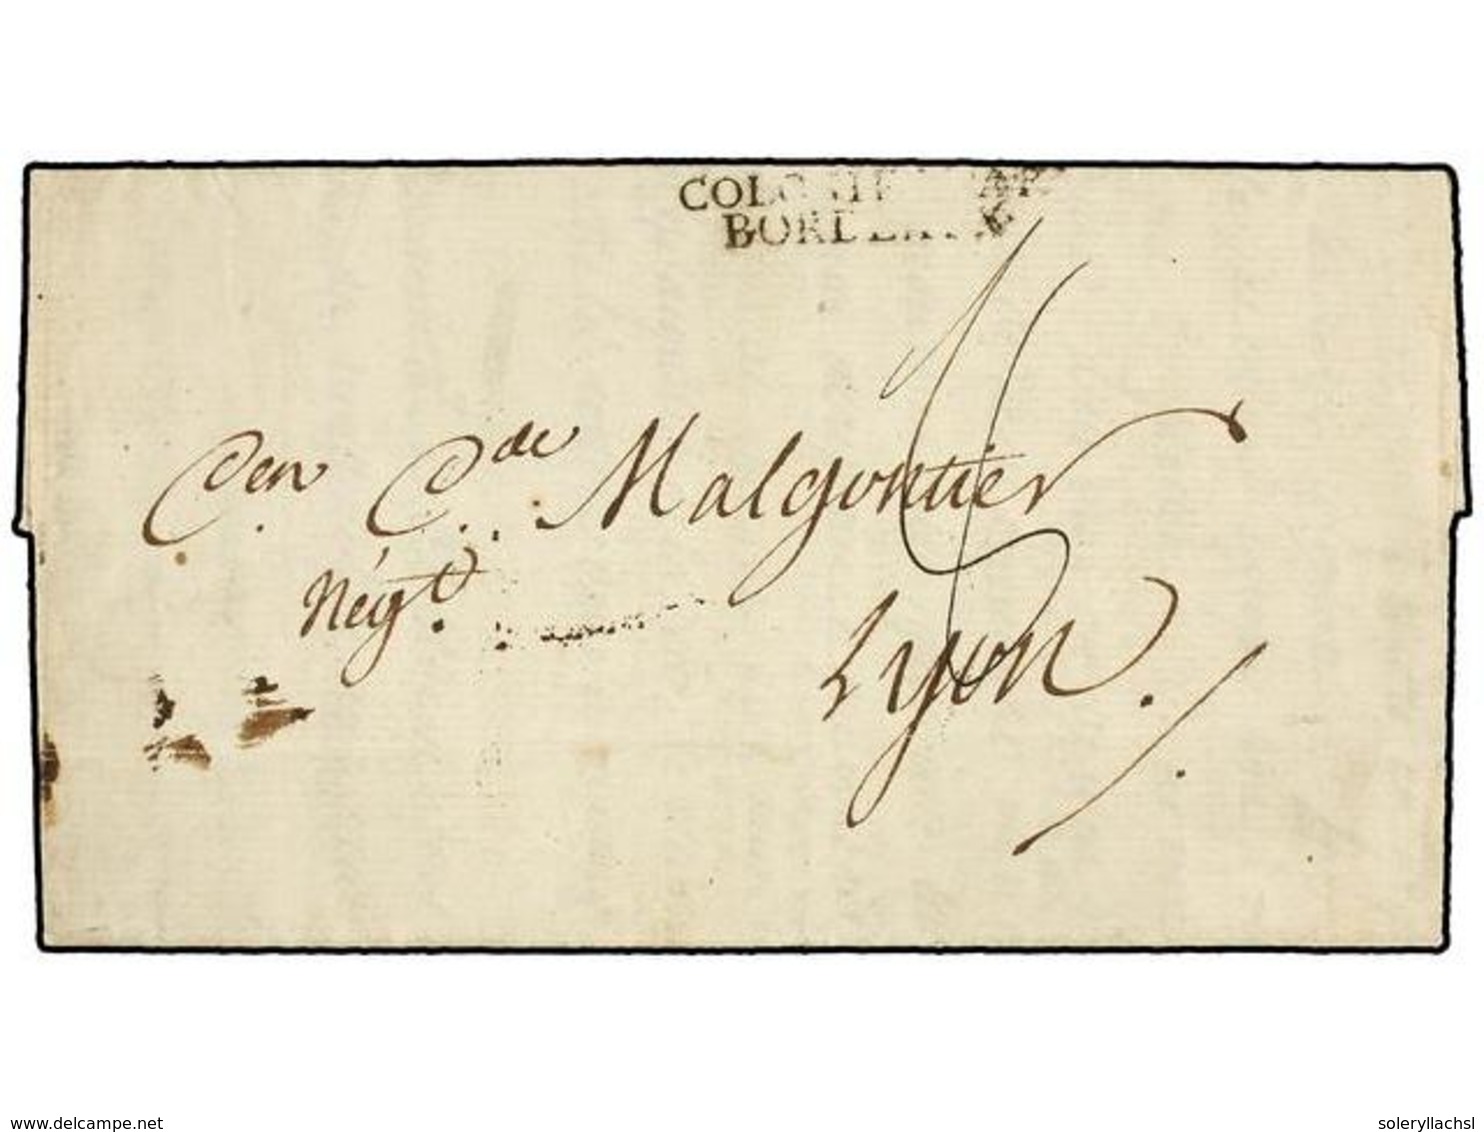 COLONIES PAR
BORDEAUX
C.en C.de Malgontier
Négt.
Lyon.
delcampe.net
soleryllachsl